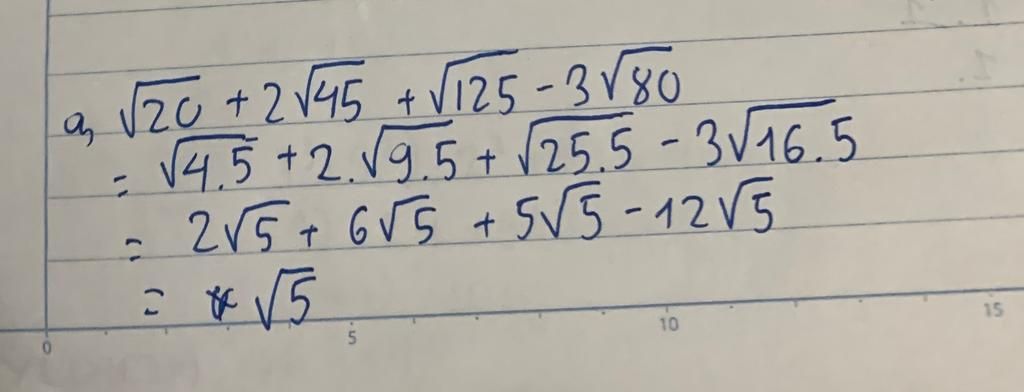 a, √20 + 2√45 + √125 - 3√80
= √4.5 + 2.√9.5 + √25.5 - 3√16.5
= 2√5 + 6√5 + 5√5 - 12√5
= √5
0 5 10 15